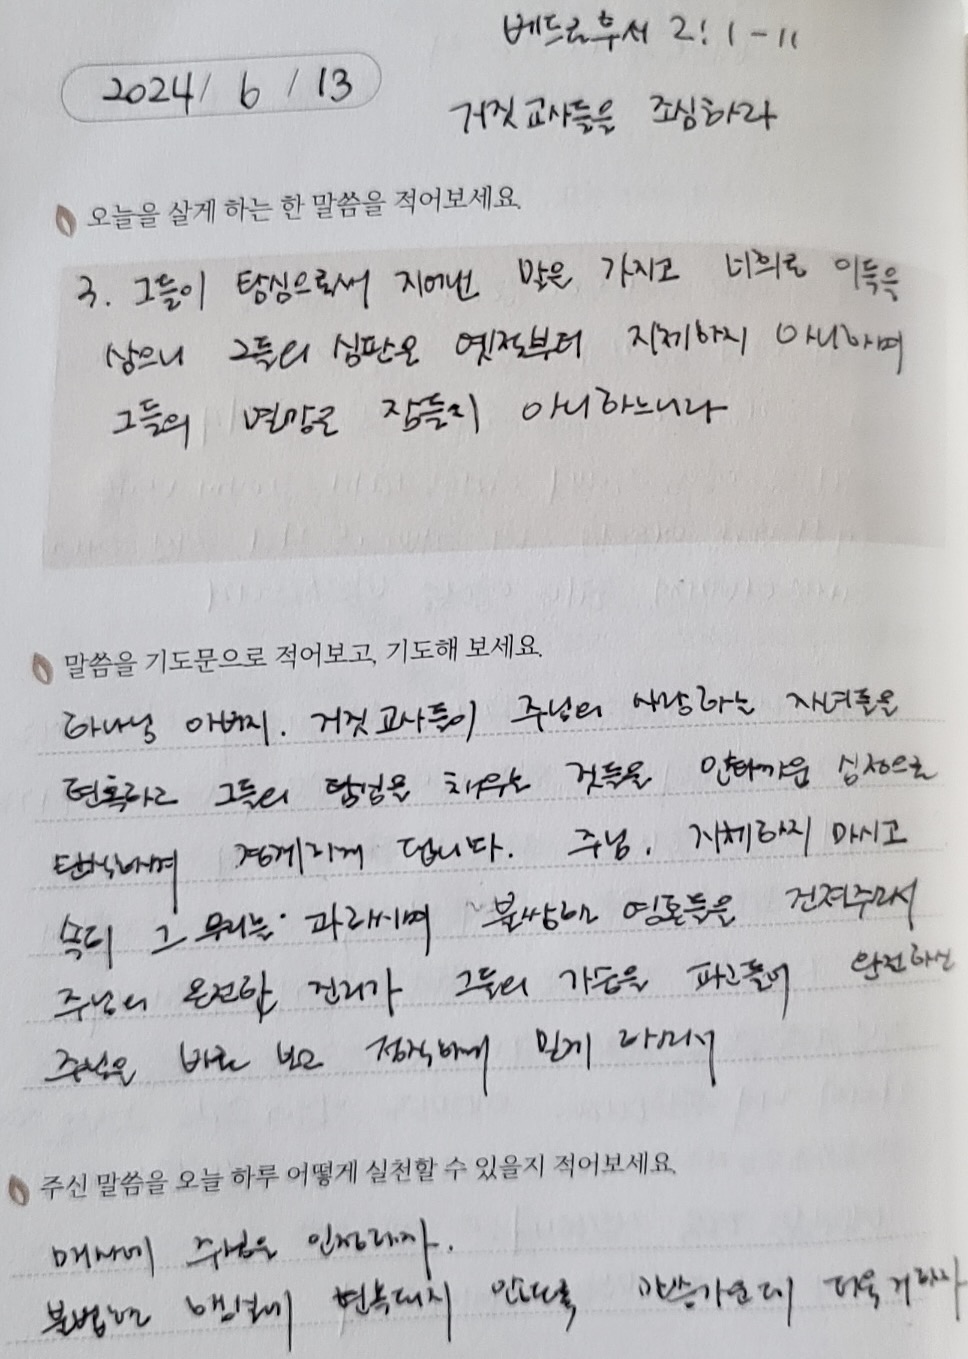 베드로후서 2:1-11
2024/ 6 / 13
거짓교사들을 조심하라
오늘을 살게 하는 한 말씀을 적어보세요.
3. 그들이 탐심으로써 지어낸 말을 가지고 너희로 이득을
삼으니 그들의 심판은 옛적부터 지체하지 아니하며
그들의 멸망은 잠들지 아니하느니라
말씀을 기도문으로 적어보고, 기도해 보세요.
하나님 아버지. 거짓교사들이 주님의 사랑하는 자녀들을
현혹하고 그들의 탐심을 채우는 것들을 안타까운 심정으로
탄식하며 경계하게 됩니다. 주님, 지체하지 마시고
속히 그 무리를 불쌍한 영혼들을 건져주소서
주님의 온전한 진리가 그들의 가슴을 파고들어 완전하신
주님을 바로 보고 정직하게 믿게 하소서
주신 말씀을 오늘 하루 어떻게 실천할 수 있을지 적어보세요.
매사에 주님을 인정하자.
불법한 현혹되지 않도록 말씀가운데 더욱 거하자